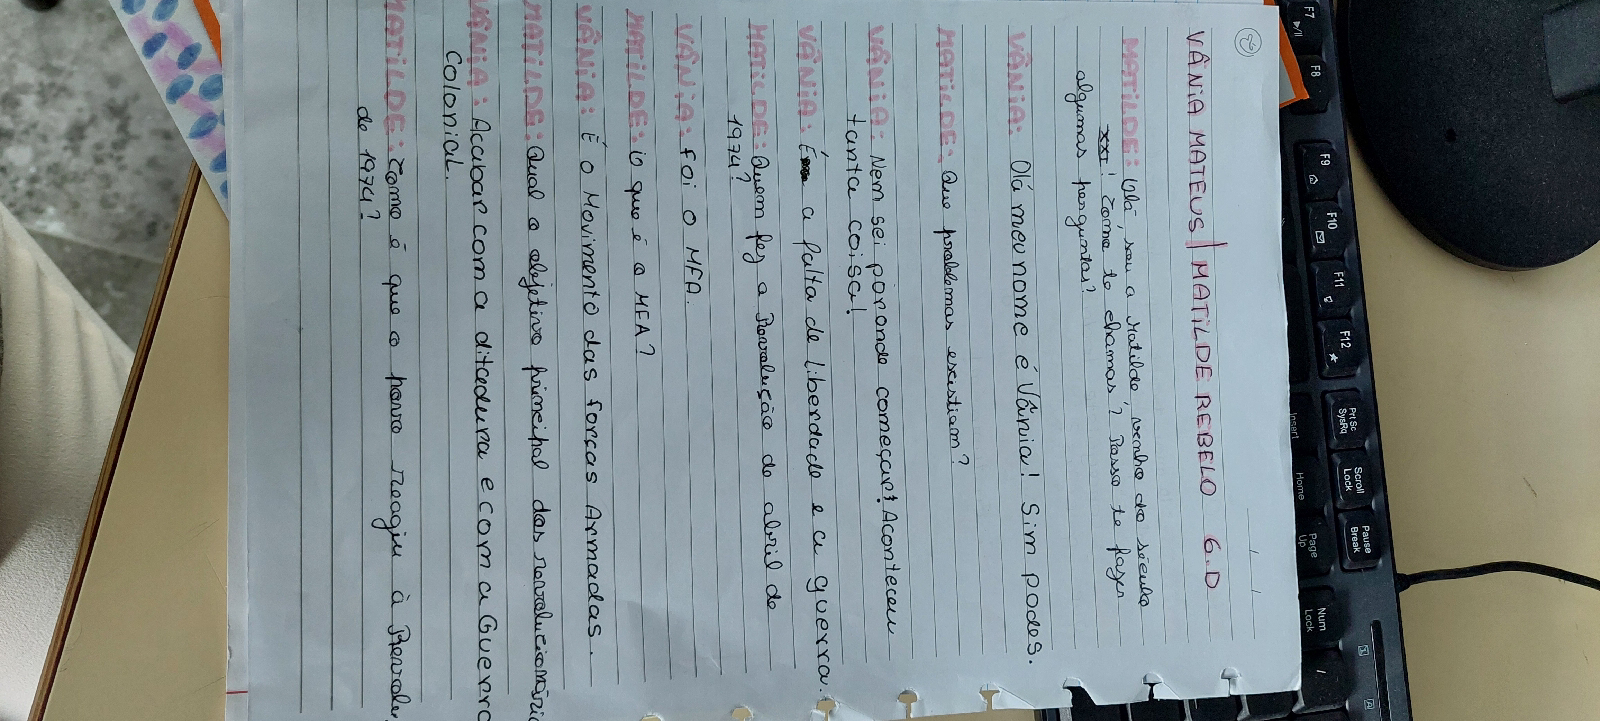 VÂNIA MATEUS | MATILDE REBELO 6.D
MATILDE: Olá, sou a Matilde, venho do século
XXI! Como te chamas? Posso te fazer
algumas perguntas?
VÂNIA: Olá meu nome é Vânia! Sim podes.
MATILDE: Que problemas existiam?
VÂNIA: Nem sei por onde começar! Aconteceu
tanta coisa!
VÂNIA: É a falta de liberdade e a guerra.
MATILDE: Quem fez a Revolução de abril de
1974?
VÂNIA: Foi o MFA.
MATILDE: o que é o MFA?
VÂNIA: É o Movimento das forças Armadas.
MATILDE: Qual o objetivo principal dos
VÂNIA: Acabar com a ditadura e com a Guerra
Colonial.
MATILDE: Como é que o povo reagiu à
de 1974?
F7
F8
F9
F10
F11
F12
Prt Sc
SysRq
Scroll
Lock
Pause
Break
Insert
Home
Page
Up
Num
Lock
/